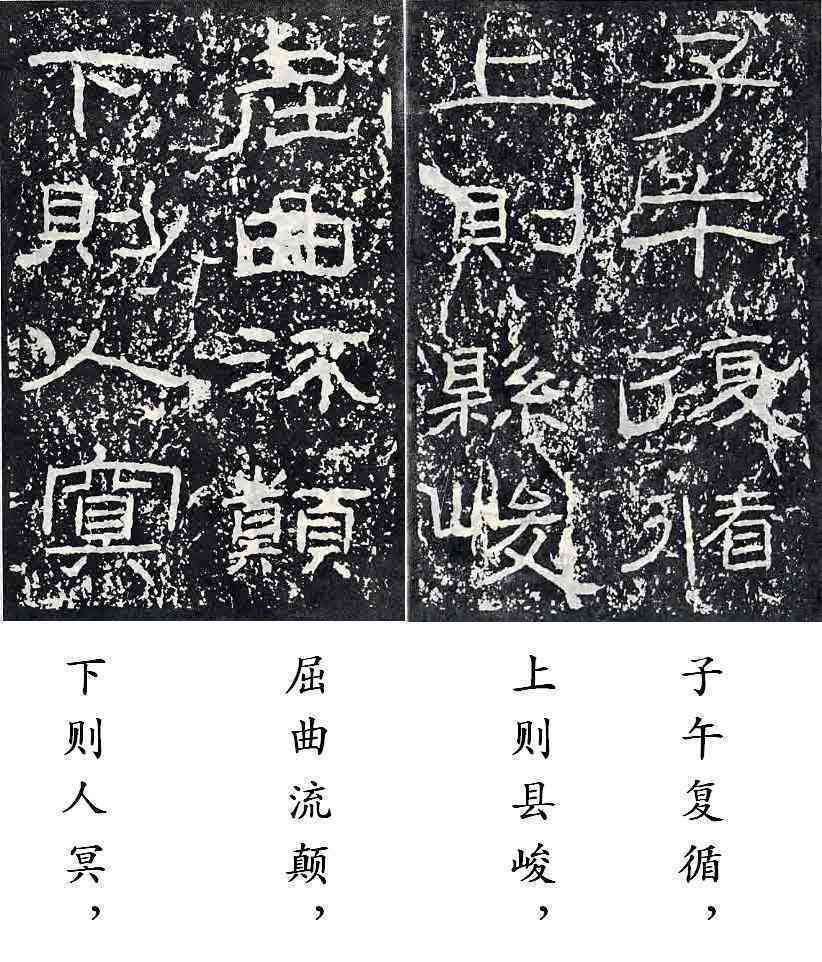 子午復循
上則縣峻
屈曲流顛
下則人冥
子午复循，
上则县峻，
屈曲流颠，
下则人冥，